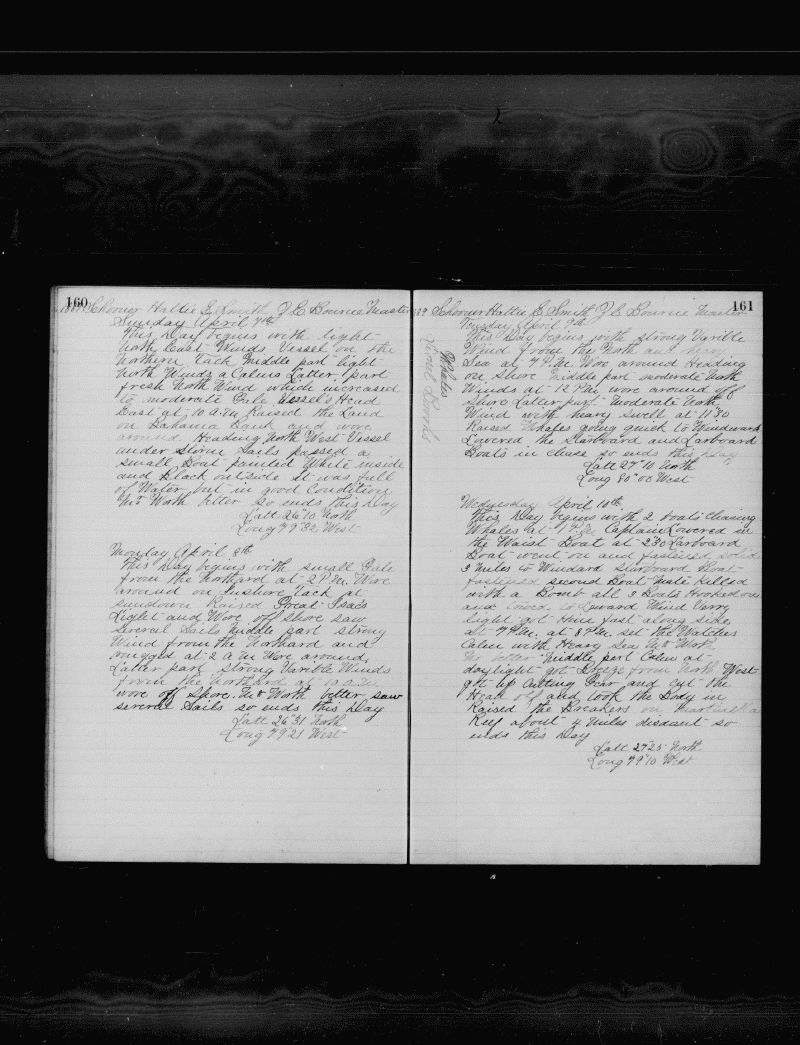 160
1889 Schooner Hattie E Smith J E Bourne Master
Sunday April 7th
This Day begins with light
North East Winds Vessel on the
Northern Tack Middle part light
North Winds & Calms Latter part
fresh North Wind which increased
to moderate Gale Vessels Head
East at 10 A.M. Raised the Land
on Bahama Bank and wore
around Heading North West Vessel
under Storm Sails passed a
small Boat painted White inside
and Black outside it was full
of Water but in good Condition
Mt Worth better so ends this Day
Latt 26°10 North
Long 79°32 West
Monday April 8th
This Day begins with small Gale
from the Northard at 2 P.M. Wore
around on Inshore Tack at
sundown Raised Great Isacs
Light and Wore off Shore saw
several Sails Middle part strong
Wind from the Northard and
rugged at 2 A.M Wore around
Latter part strong Varible Winds
form the Northard at 10 A.M
wore off Shore. Mt Worth better, saw
several Sails so ends this Day
Latt 26°31 North
Long 79°21 West
161
Schooner Hattie E Smith J E Bourne Master
Tuesday April 9th
This Day begins with strong Varible
Wind from the North and heavy
Sea at 4 P.M. Wore around Heading
on Shore Middle part moderate North
Winds at 12 P.M. wore around off
Shore Latter part moderate North
Wind with heavy swell at 11 30
Raised Whales going quick to Windward
Lowered the Starboard and Larboard
Boats in chase so ends this Day
Latt 27°10 North
Long 80°00 West
Whales
Wednesday April 10th
This Day begins with 2 boats chasing
Whales at Captain Lowered in
the Waist Boat at 2 30 Larboard
Boat went on and fastened solid
3 Miles to Windard Starboard Boat
fastened second Boat Mate killed
with a Bomb all 3 Boats Hooked on
and towed to Leward Wind Verry
light got Him fast along side
at 7 P.M. at 8 P.M. set the Watches
Calm with Heavy Sea Mt Worth
no better Middle part Calm at
daylight got Breeze from North West
got up Cutting Gear and cut the
Head off and took the Body in
Raised the Breakers on
Reef about 4 Miles distant so
ends this Day
Latt 27°25 North
Long 79°10 West